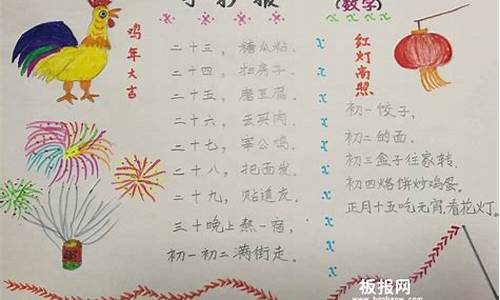 手抄报
(数学)
鸡年大吉
二十三，糖瓜粘.
二十四，扫房子.
二十五，磨豆腐.
二十六，去买肉.
二十七，宰公鸡.
二十八，把面发.
二十九，贴道友.
三十晚上熬一宿，
初一初二满街走。
x
x
x
x
x
x
x
x
x
红灯高照
初一饺子，
初二的面.
初三盒子往家转.
初四烙饼炒鸡蛋.
正月十五吃元宵.看花灯.
板报网
www.banbaow.com